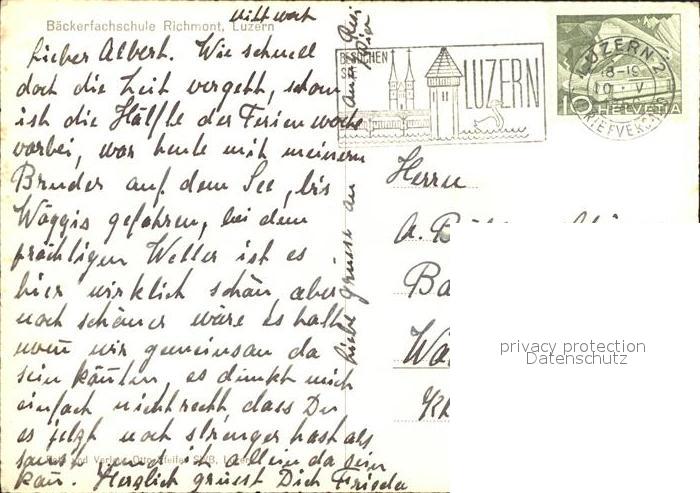 Bäckerfachschule Richmont, Luzern
Mittwoch
Lieber Albert. Wie schnell
doch die Zeit vergeht, schon
ist die Hälfte der Ferienwoche
vorbei, war heute mit meinem
Bruder auf dem See, bis
Wäggis gefahren, bei dem
prächtigen Wetter ist es
hier wirklich schön, aber
noch schöner wäre es halt
wen wir gemeinsam da
sein könten, es dünkt mich
einfach nicht recht, dass Du
es jetzt noch strenger hast als
sonst und ich allein da sein
kan. Herzlich grüsst Dich Frieda
Liebe Grüsse an
und Verlag Otto Pfeifer SWB, Luzern
BESUCHEN
SIE
LUZERN
LUZERN 2
18-19
10 · V
BRIEFVERSAND
10 HELVETIA
Herrn
A. B
Ba
Wä
privacy protection
Datenschutz